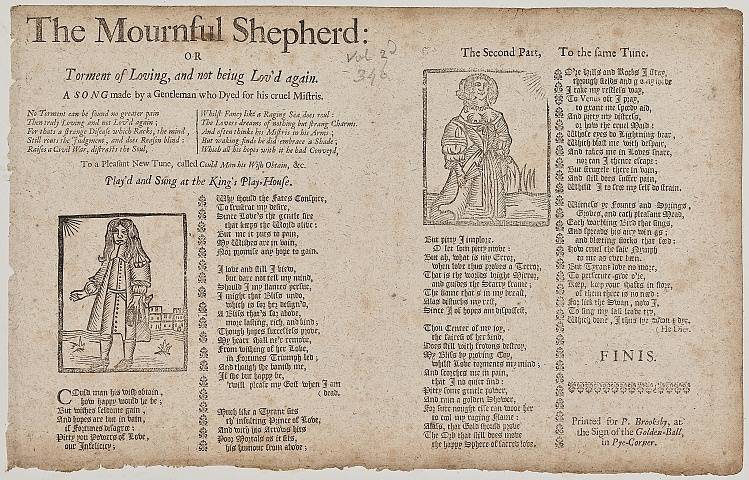 The Mournful Shepherd:
OR
Torment of Loving, and not being Lov'd again.
A SONG made by a Gentleman who Dyed for his cruel Mistris.
No Torment can be found no greater pain
Then truly Loving and not Lov'd again;
For thats a strange Disease which Racks, the mind,
Still routs the Judgment, and does Reason blind:
Raises a Civil War, distracts the Soul,
Whilst Fancy like a Raging Sea, does roul:
The Lovers dreams of nothing but strange Charms.
And often thinks his Mistris in his Arms;
But waking finds he did embrace a Shade;
Whilst all his hopes with it he had Convey'd,
To a Pleasant New Tune, called Could Man his Wish Obtain, &c.
Play'd and Sung at the King's Play-House.
COuld man his wish obtain,
how happy would he be;
But wishes seldome gain,
and hopes are but in vain,
if Fortunes disagree:
Pitty you Powers of Love,
our Infelicity;
Why should the Fates Conspire,
To frustrat my desire,
Since Love's the gentle fire
that keeps the World alive:
But me it puts to pain,
My Wishes are in vain,
Nor promise any hope to gain.
I love and still I view,
but dare not tell my mind,
Should I my flames persue,
I might that Bliss undo,
which is for her design'd,
A Bliss that's far above,
more lasting, rich, and kind;
Though hopes successless prove,
My heart shall ne'r remove,
From wishing of her Love,
in Fortunes Triumph led;
And though she banish me,
If she but happy be,
'twill please my Gost when I am
(dead.
Much like a Tyrant sits
th' insulting Prince of Love,
And with his Arrows hits
Poor Mortals as it fits,
his humour from above;
vol 2d
346
The Second Part, To the same Tune.
But pitty I implore,
O let som pitty move:
But ah, what is my Error,
when love thus proves a Terror,
That is the worlds bright Mirror,
and guides the Starry frame;
The flame that's in my breast,
Alas disturbs my rest,
Since I of hopes am dispossest,
Thou Center of my joy,
the fairest of her kind,
Does still with frowns destroy,
My Bliss by proving Coy,
whilst Love torments my mind;
And scorches me in pain,
that I no quiet find:
Pitty some gentle power,
And rain a golden Shower,
For sure nought else can move her
to cool my raging Flame:
Alass, that Gold should prove
The Orb that still does move
the happy Sphere of sacred love.
O're hills and Rocks I stray,
through fields and
I take my restless way,
To Venus oft I pray,
to grant me speedy aid,
And pitty my distress,
or foil the cruel Maid:
Whose eyes do Lightning bear,
Which blast me with despair,
And takes me in Loves snare,
nor can I thence escape:
But strugele there in vain,
And still does suffer pain,
Whilst I to free my self do strain.
Witness ye Founts and Springs,
Groves, and each pleasant Mead,
Each warbling Bird that sings,
And spreads his airy wings;
and bleating flocks that feed:
How cruel the fair Nymph
to me as ever been.
But Tyrant love no more,
To persecute give o're,
Keep, keep your shafts in store,
of them there is no need:
For, like the Swan, now I,
To sing my last leave try,
Which done, I thus lye down & dye.
He Dies.
FINIS.
Printed for P. Brooksby, at
the Sign of the Golden-Ball,
in Pye-Corner.